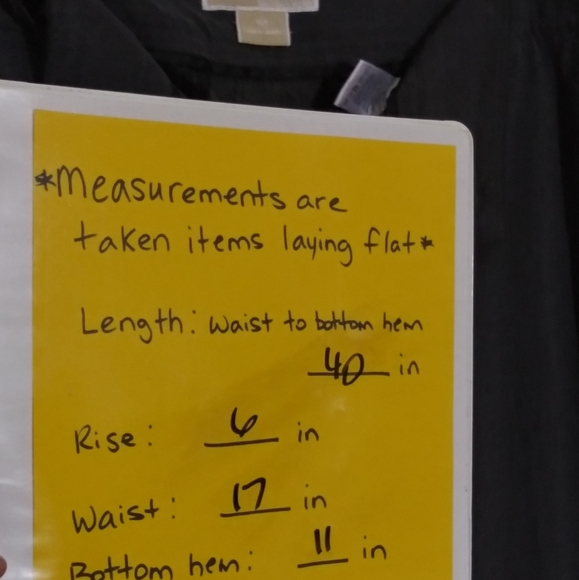 *Measurements are
taken items laying flat*
Length: waist to bottom hem
40 in
Rise: 6 in
Waist: 17 in
Bottom hem: 11 in